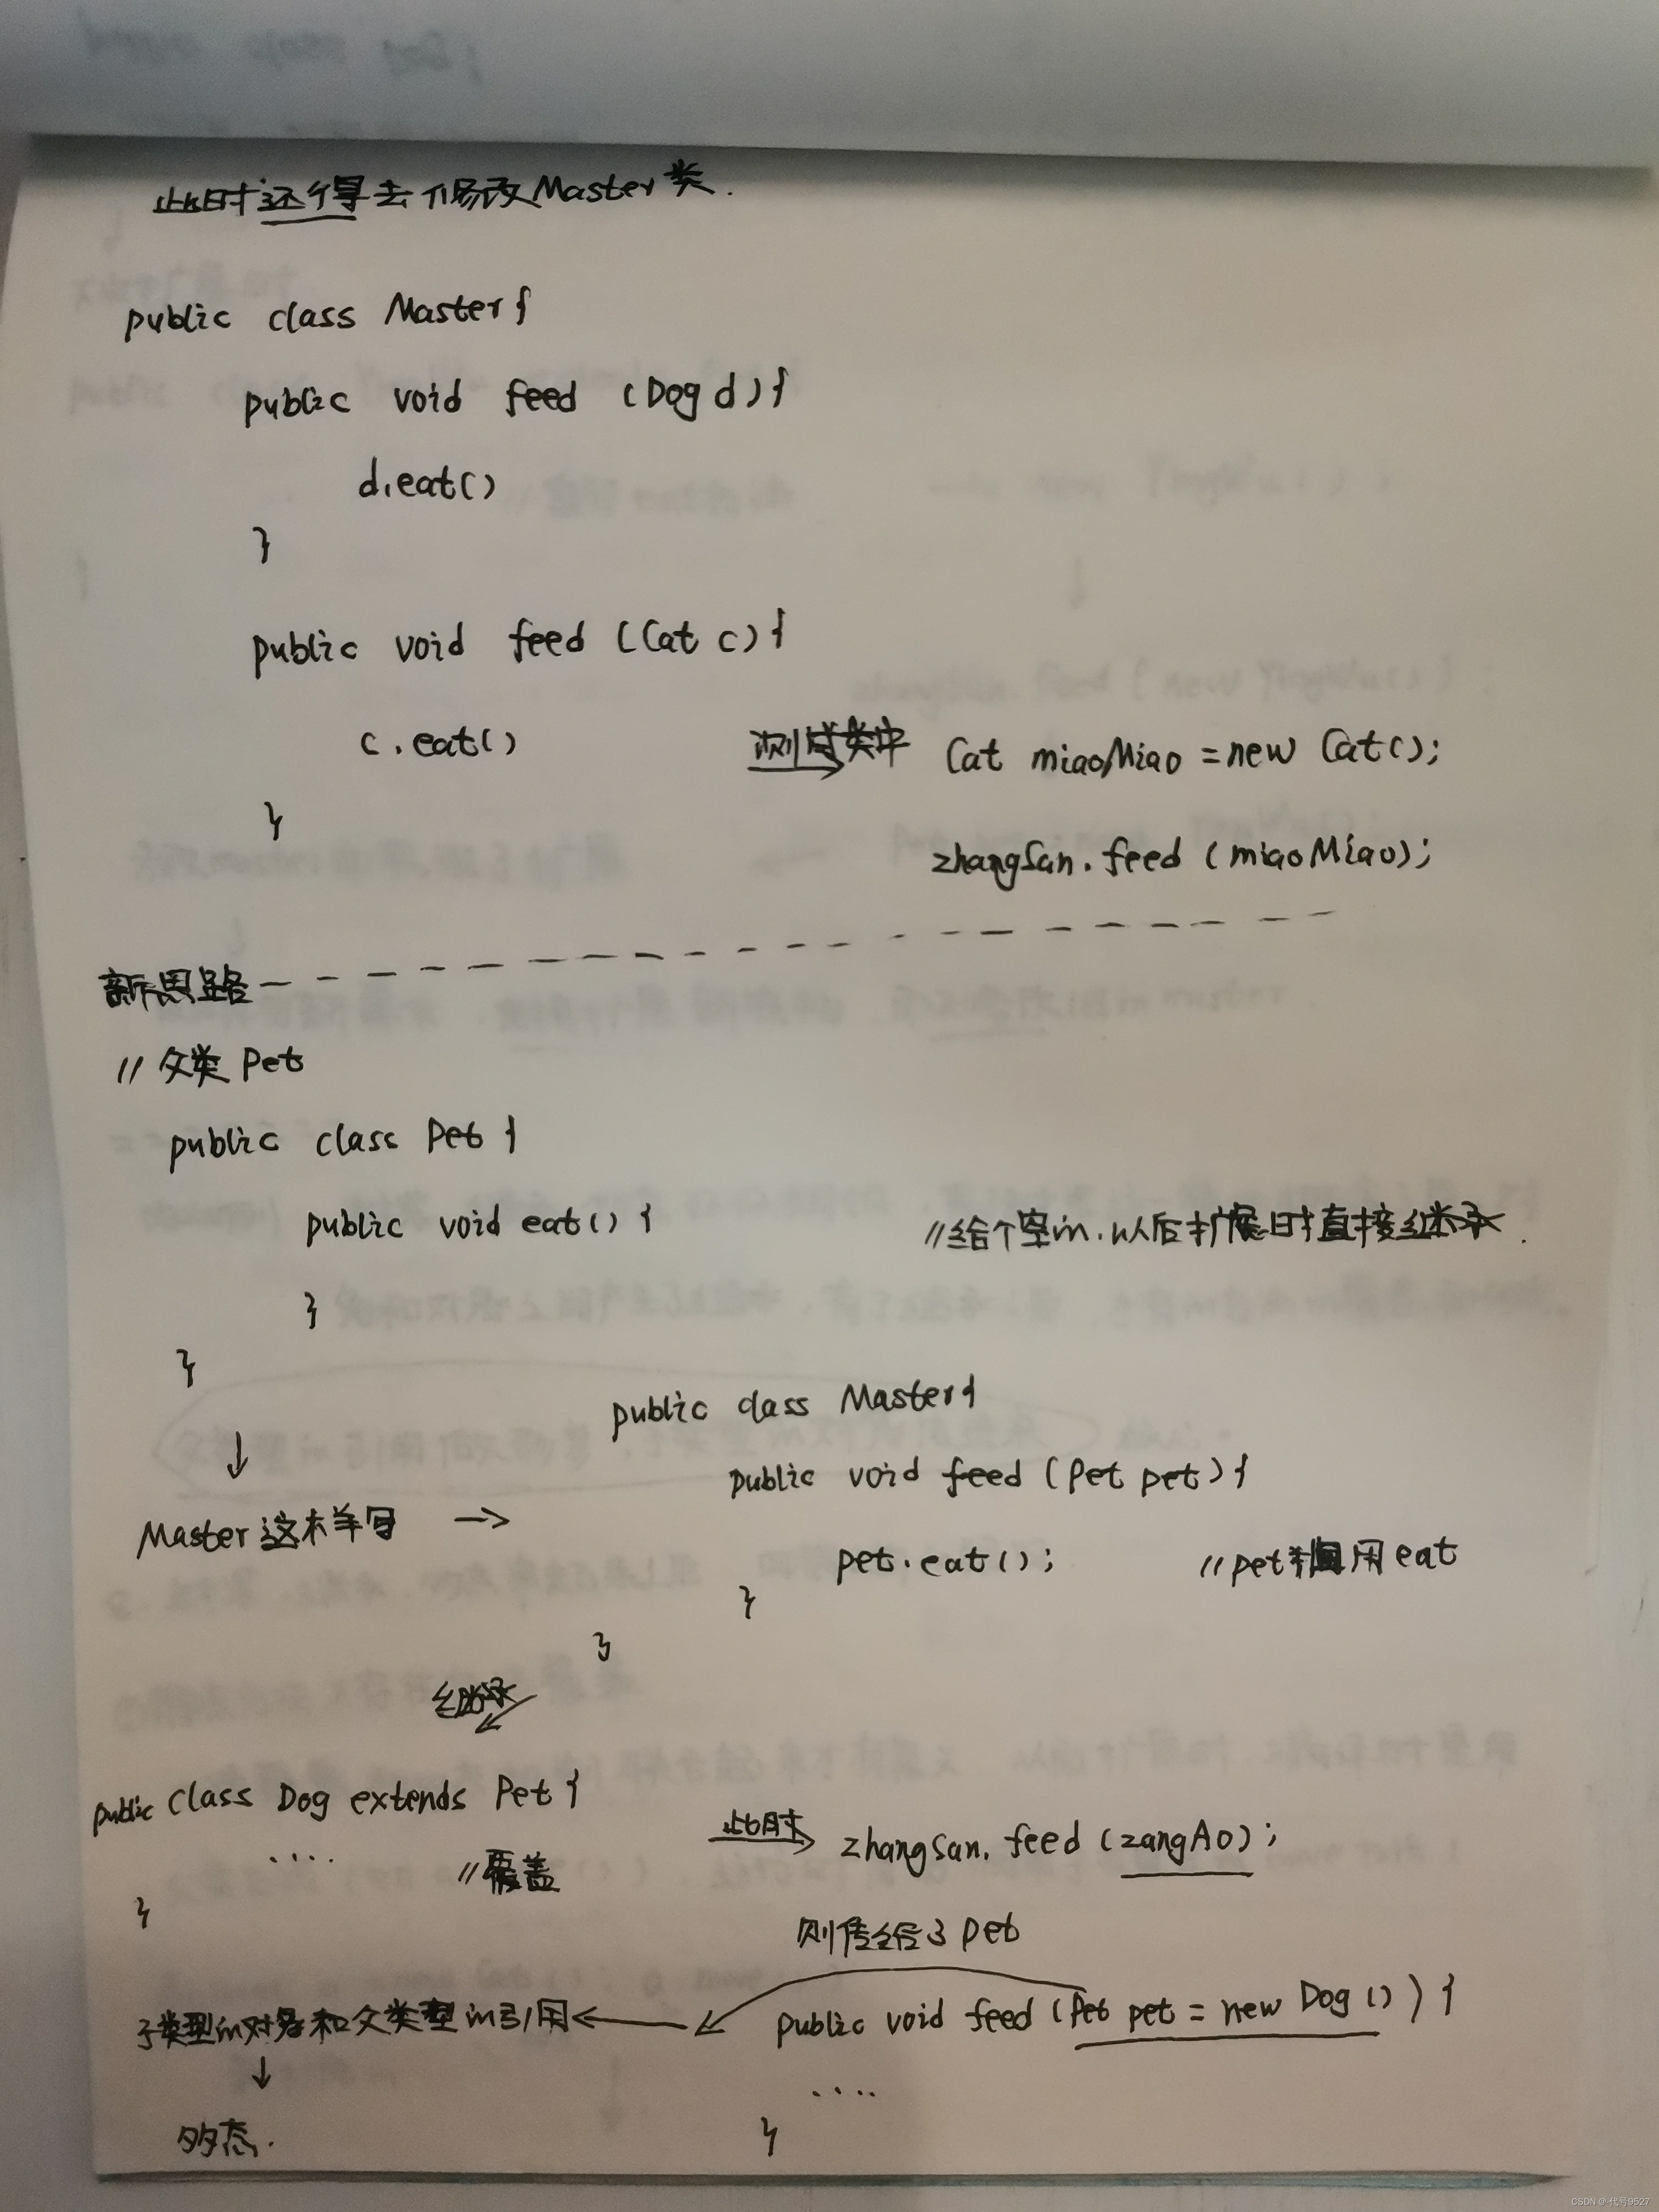 此时还得去修改Master类.
public class Master{
public void feed (Dog d){
d.eat()
}
public void feed (Cat c){
c.eat()
测试类中 Cat miaoMiao = new Cat();
}
zhangSan.feed (miaoMiao);
新思路
// 父类 Pet
public class Pet {
public void eat() {
//给个空的.以后扩展时直接继承.
}
}
public class Master{
public void feed (Pet pet){
Master 这样写
pet.eat();
//pet调用eat
}
}
继承
public class Dog extends Pet {
....
//覆盖
}
此时 zhangSan.feed (zangAo);
则传给了 pet
子类型的对象和父类型的引用
public void feed (Pet pet = new Dog ()) {
....
多态.
}
CSDN @代号9527